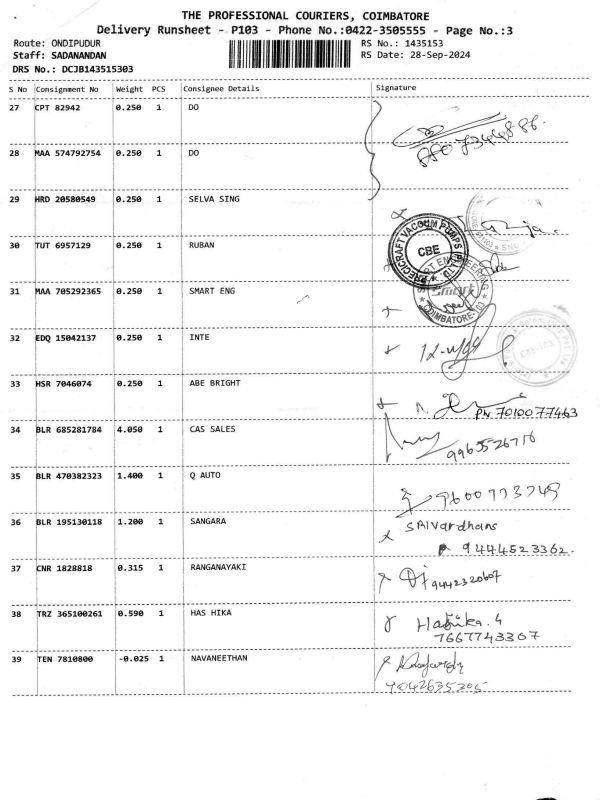 THE PROFESSIONAL COURIERS, COIMBATORE
Delivery Runsheet - P103 - Phone No.:0422-3505555 - Page No.:3
Route: ONDIPUDUR RS No.: 1435153
Staff: SADANANDAN RS Date: 28-Sep-2024
DRS No.: DCJB143515303
S No Consignment No Weight PCS Consignee Details Signature
27 CPT 82942 0.250 1 DO
28 MAA 574792754 0.250 1 DO
29 HRD 20580549 0.250 1 SELVA SING
30 TUT 6957129 0.250 1 RUBAN
PRECICRAFT VACUUM PUMPS PVT LTD
CBE
31 MAA 705292365 0.250 1 SMART ENG
SMART ENGINEERING
Smart
COIMBATORE-103
32 EDQ 15042137 0.250 1 INTE
33 HSR 7046074 0.250 1 ABE BRIGHT
PN 7010077463
34 BLR 685281784 4.050 1 CAS SALES
9963526716
35 BLR 470382323 1.400 1 Q AUTO
9600773749
36 BLR 195130118 1.200 1 SANGARA
SAIVardhans
9444523362.
37 CNR 1828818 0.315 1 RANGANAYAKI
9442320607
38 TRZ 365100261 0.590 1 HAS HIKA
7667743307
39 TEN 7810800 -0.025 1 NAVANEETHAN
9042635205